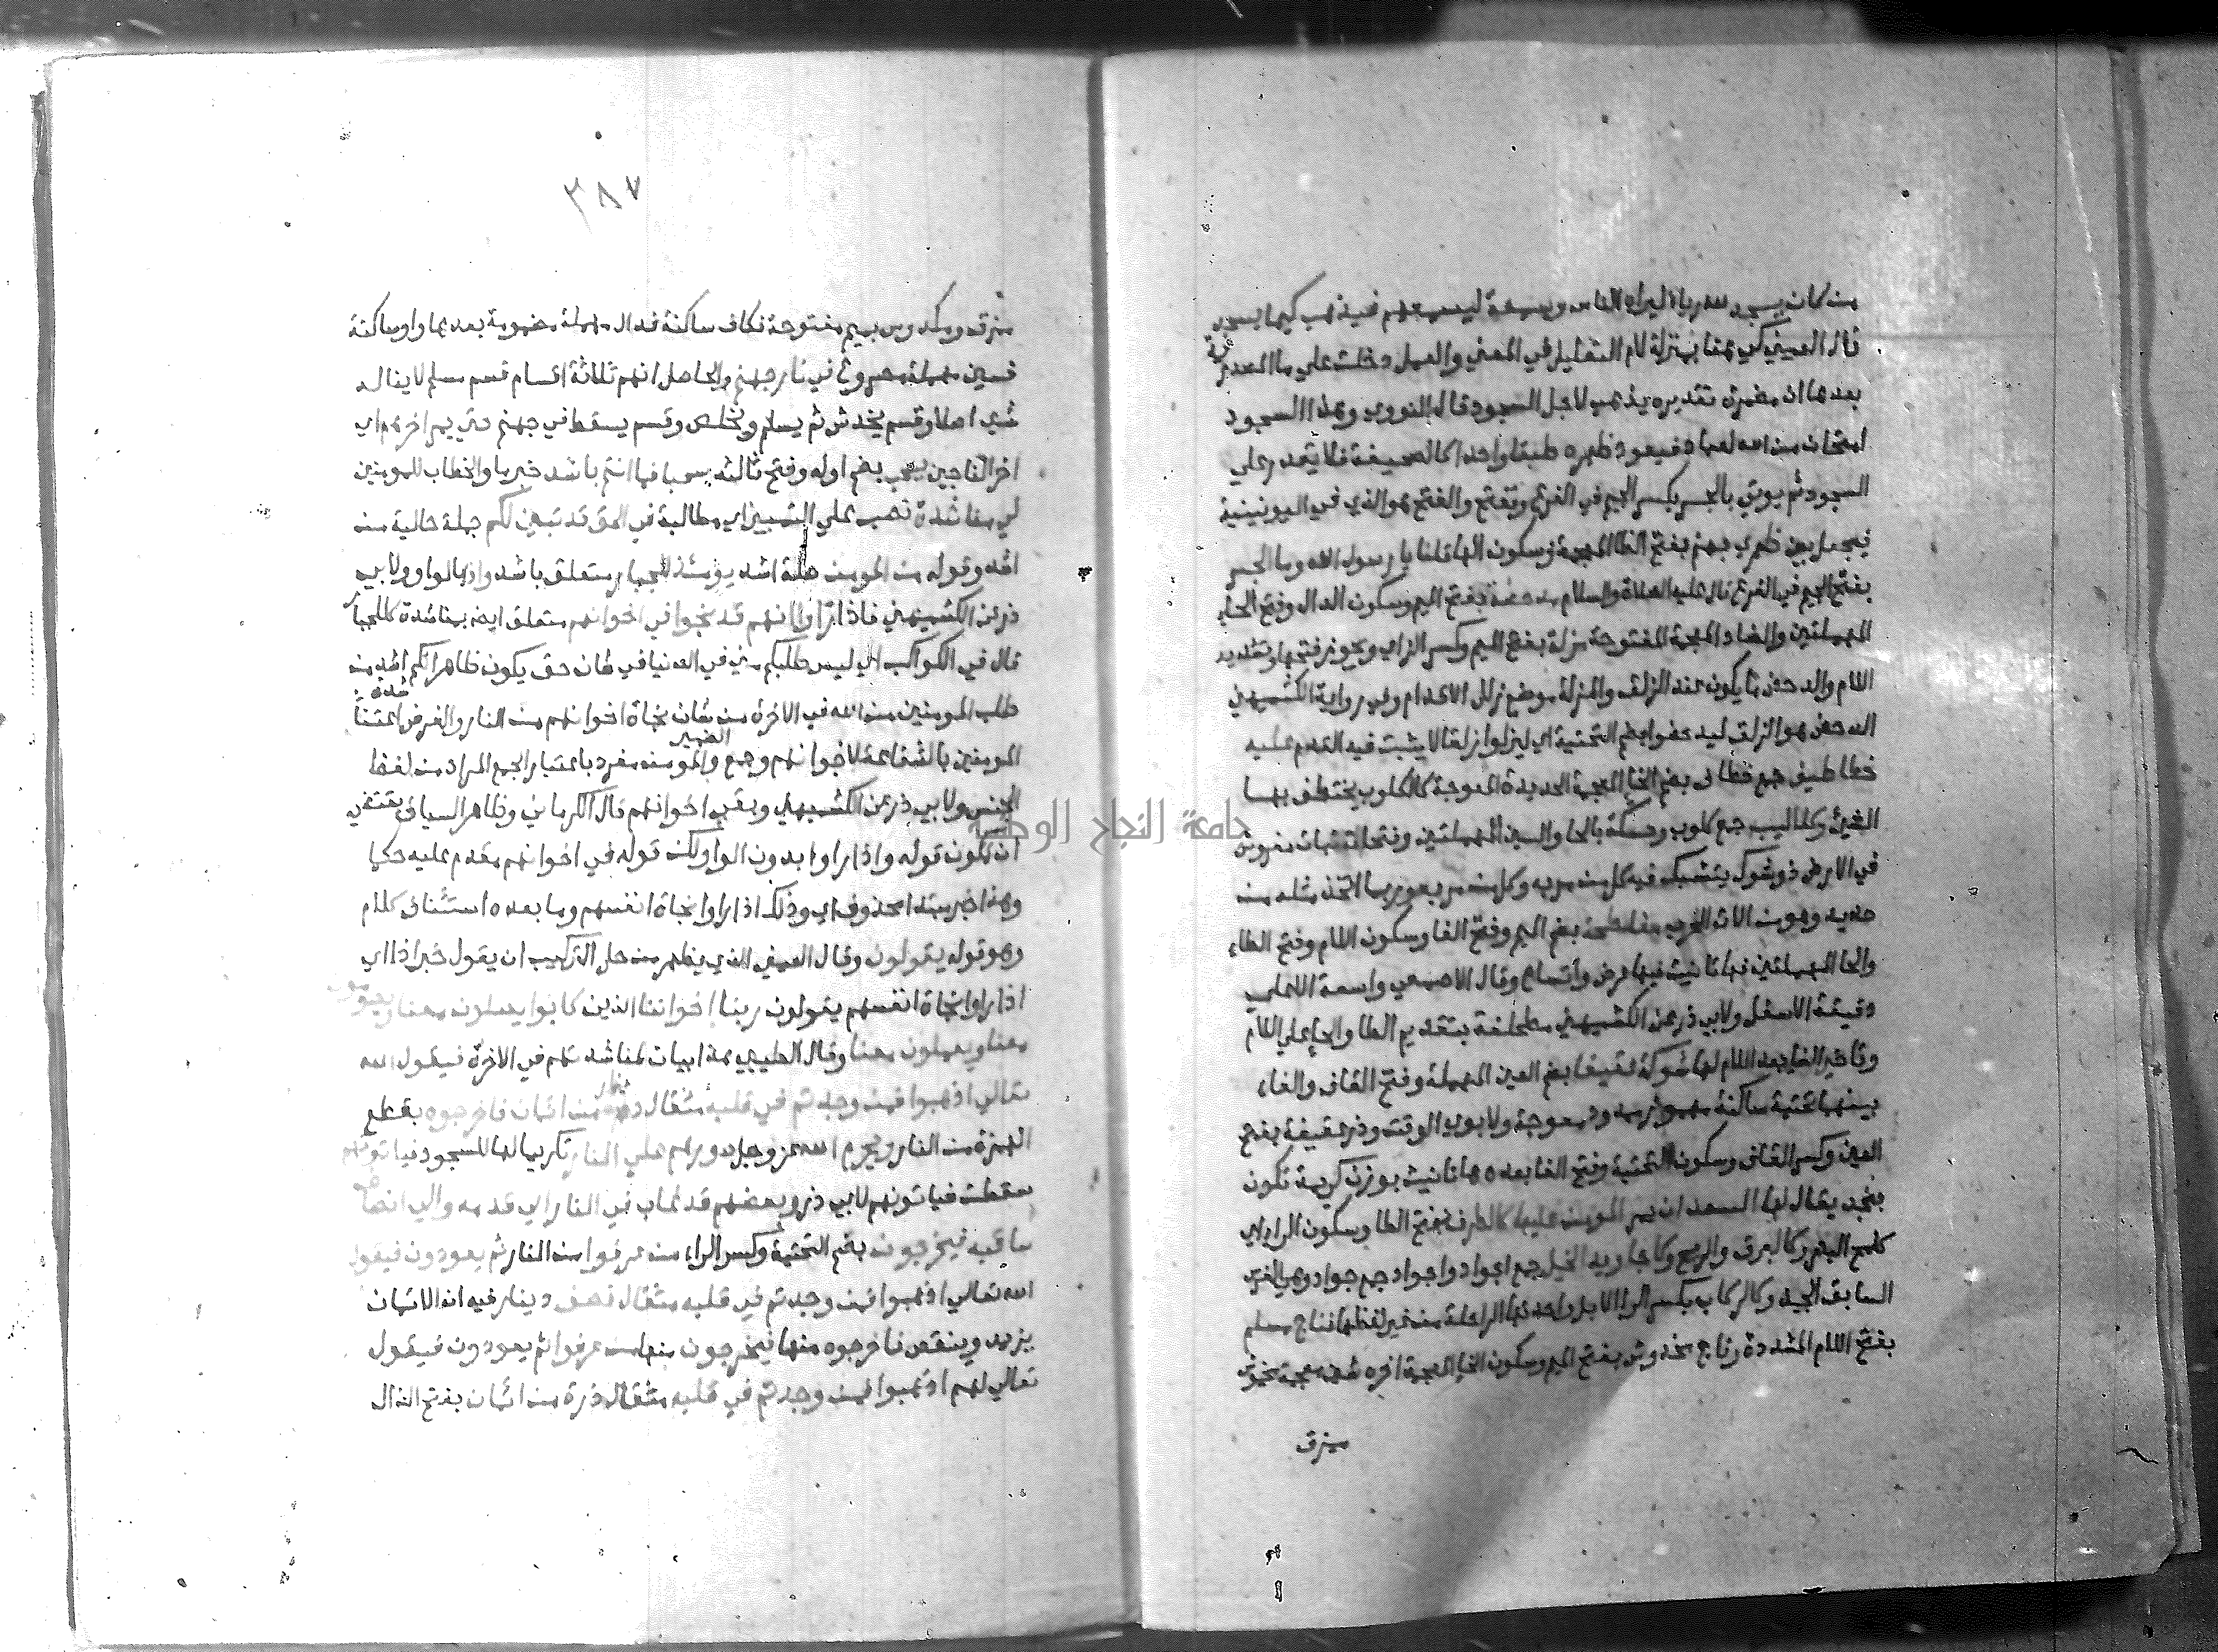 من كان يسجد لله رياء ليراه الناس وسمعة ليسمعهم فيذهب كيما يسجد
قال العيني كي هنا بمنزلة لام التعليل في المعنى والعمل دخلت على ما المصدرية
بعدها ان مضمرة تقديره يذهب لاجل السجود قال النووي وهذا السجود
امتحان من الله لعباده فيعود ظهره طبقا واحدا كالصحيفة فلا يقدر على
السجود ثم يوتي بالجسر بكسر الجيم في الفرع وتفتح والفتح هو الذي في اليونينية
فيجعل بين ظهري جهنم بفتح الظا المعجمة وسكون الها قلنا يا رسول الله وما الجسر
بفتح الجيم في الفرع قال عليه الصلاة والسلام مدحضة بفتح الميم وسكون الدال وفتح الحاء
المهملتين والضاد المعجمة المفتوحة مزلة بفتح الميم وكسر الزاي ويجوز فتحها وتشديد
اللام والدحض ما يكون عنه الزلق والمزلة موضع زلل الاقدام وفي رواية الكشميهني
الدحض هو الزلق ليدحضوا بضم التحتية اي ليزلوا زلقا لا يثبت فيه القدم عليه
خطاطيف جمع خطاف بضم الخا المعجمة الحديدة المعوجة كالكلوب يختطف بها
الشيئ وكلاليب جمع كلوب وحسكة بالحا والسين المهملتين وفتحات نبات مفروش
في الارض ذو شوك يتشبك فيه كل من مر به وكل من مر به وربما اتخذ مثله من
حديد وهو من الات الحرب مفلطحة بضم الميم وفتح الفا وسكون اللام وفتح الطاء
والحا المهملتين فها تانيث فيها عرض واتساع وقال الاصمعي واسعة الاعلى
دقيقة الاسفل ولابي ذر عن الكشميهني مطحلفة بتقديم الطا والحا على اللام
وتاخير الفا بعد اللام لها شوكة عقيفا بضم العين المهملة وفتح القاف والفاء
بينهما تحتية ساكنة مهموز ممدود معوجة ولابوي الوقت وذر عقيفة بفتح
العين وكسر القاف وسكون التحتية وفتح الفا بعدها ها تانيث بوزن كريمة تكون
بنجد يقال لها السعدان يمر المومن عليها كالطرف بفتح الطا وسكون الرا اي
كلمح البصر وكالبرق والريح وكاجاويد الخيل جمع اجواد واجواد جمع جواد وهو الفرس
السابق الجيد وكالركاب بكسر الرا الابل واحدتها الراحلة من غير لفظها فناج مسلم
بفتح اللام المشددة وناج مخدوش بفتح الميم وسكون الخا المعجمة اخره شين معجمة مخموش
ممزق
٣٨٧
ممزق ومكدوس بميم مفتوحة فكاف ساكنة فدال مهملة مضمومة بعدها واو ساكنة
فسين مهملة مصروع في نار جهنم والحاصل انهم ثلاثة اقسام قسم مسلم لا يناله
شيئ اصلا وقسم يخدش ثم يسلم ويخلص وقسم يسقط في جهنم حتى يمر اخرهم اي
اخر الناجين يسحب بضم اوله وفتح ثالثه سحبا فما انتم باشد خبر ما والخطاب للمومنين
لي مناشدة نصب على التمييز اي مطالبة في الحق قد تبين لكم جملة حالية من
اشد وقوله من المومن صلة اشد يومئذ للجبار متعلق باشد واذا بالواو ولابي
ذر عن الكشميهني فاذا راوا انهم قد نجوا في اخوانهم متعلق ايضا بمناشدة للجبار
قال في الكواكب اي ليس طلبكم مني في الدنيا في شان حق يكون ظاهرا لكم اشد من
طلب المومنين من الله في الاخرة من شان نجاة اخوانهم من النار والغرض شدة اعتناء
المومنين بالشفاعة لاخوانهم وجمع الضمير والمومن مفرد باعتبار الجمع المراد من لفظ
الجنس ولابي ذر عن الكشميهني وبقي اخوانهم قال الكرماني وظاهر السياق يقتضي
ان يكون قوله واذا راوا بدون الواو ولكن قوله في اخوانهم مقدم عليه حكما
وهذا خبر مبتدا محذوف اي وذلك اذا راوا نجاة انفسهم وما بعده استئناف كلام
وهو قوله يقولون وقال العيني الذي يظهر من حل التركيب ان يقول خبر اذا اي
اذا راوا نجاة انفسهم يقولون ربنا اخواننا الذين كانوا يصلون معنا ويصومون
معنا ويعملون معنا وقال الطيبي هذا بيان لمناشدتهم في الاخرة فيقول الله
تعالى اذهبوا فمن وجدتم في قلبه مثقال دينار من ايمان فاخرجوه بقطع
الهمزة من النار ويحرم الله عز وجل صورهم على النار تكريما لها للسجود فياتونهم
سقطت فياتونهم لابي ذر وبعضهم قد غاب في النار الى قدمه والى انصاف
ساقيه فيخرجون بضم التحتية وكسر الراء من عرفوا من النار ثم يعودون فيقول
الله تعالى اذهبوا فمن وجدتم في قلبه مثقال نصف دينار فيه ان الايمان
يزيد وينقص فاخرجوه منها فيخرجون منها من عرفوا ثم يعودون فيقول
تعالى لهم اذهبوا فمن وجدتم في قلبه مثقال ذرة من ايمان بفتح الذال
جامعة النجاح الوطنية